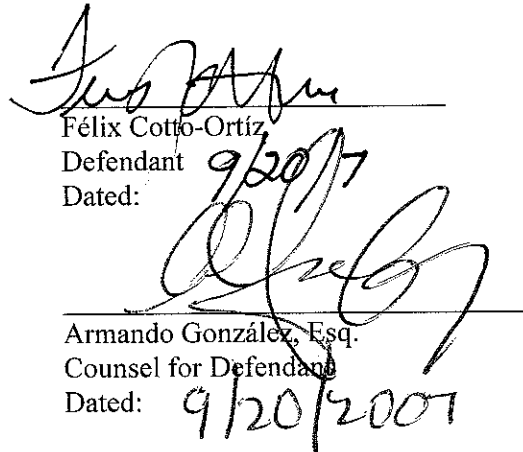 Félix Cotto-Ortíz
Defendant 9/20/7
Dated:
Armando González, Esq.
Counsel for Defendant
Dated: 9/20/2007